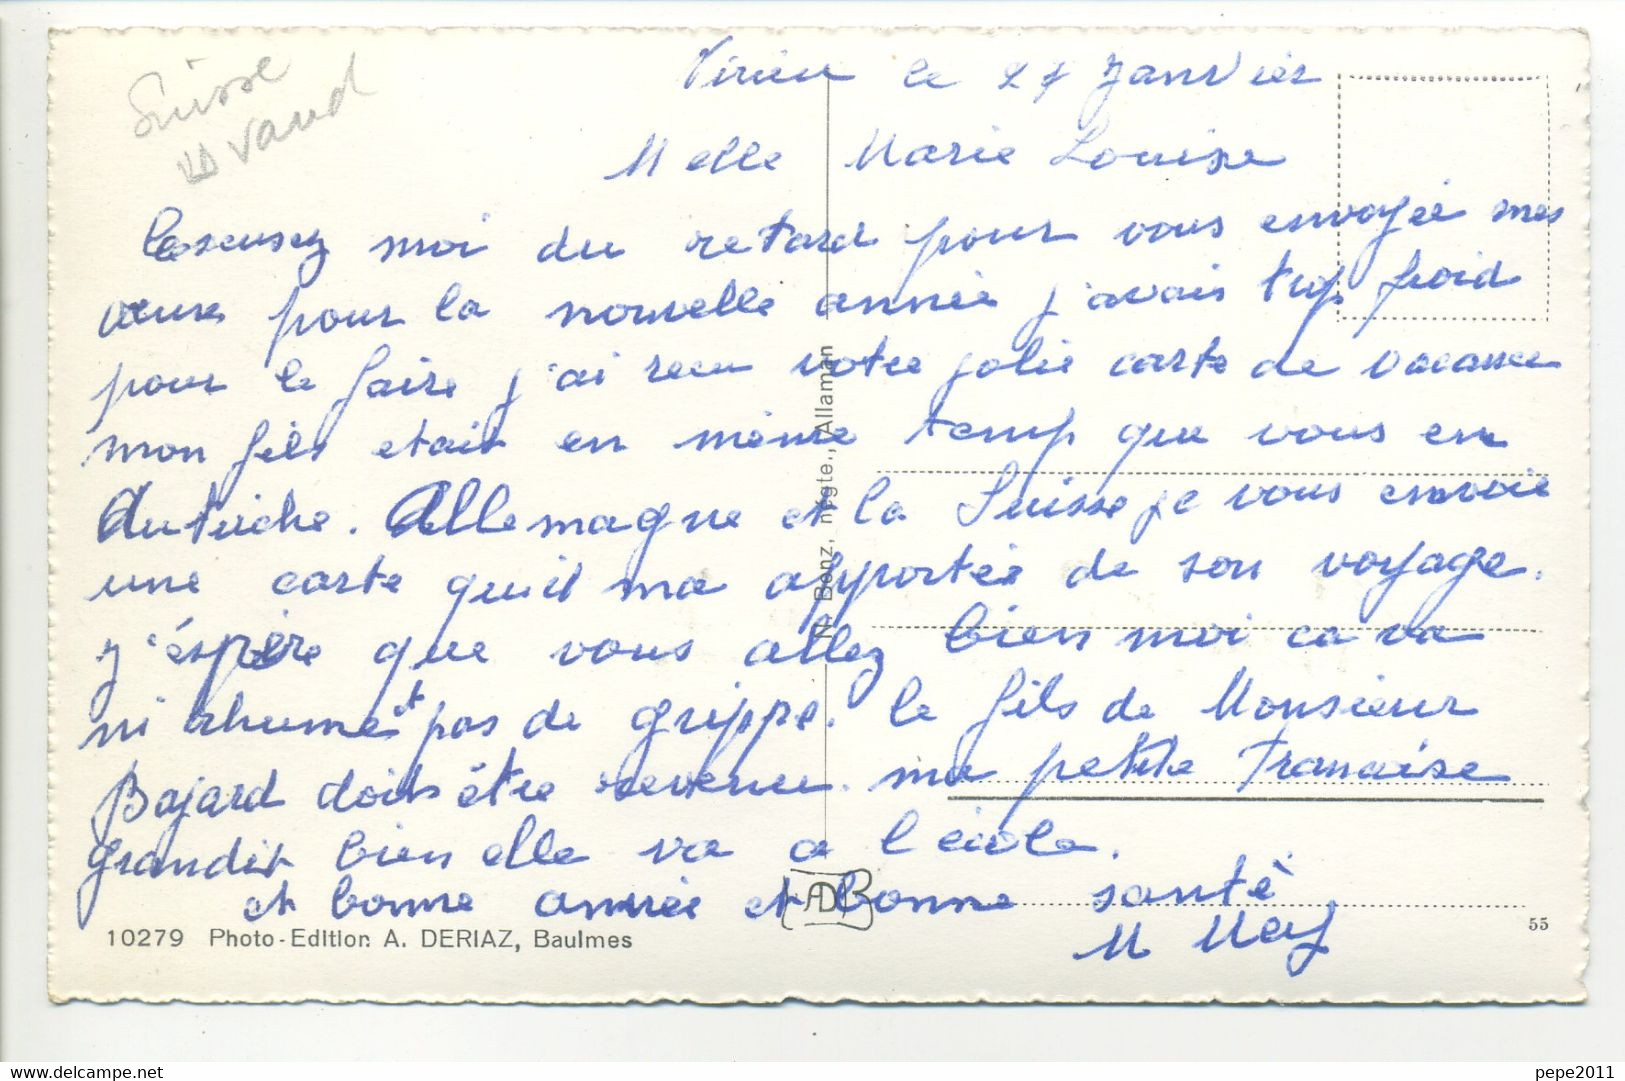 Suisse
Vaud
Virieu le 27 Janvier
Melle Marie Louise
Excusez moi du retard pour vous envoyée mes
vœux pour la nouvelle année j'avais trop froid
pour le faire j'ai recu votre jolie carte de vacance
mon fils etait en même temp que vous en
Autriche. Allemagne et la Suisse je vous envoie
une carte quil ma apportée de son voyage.
j'éspère que vous allez bien moi ca va
ni rhume et pas de grippe. le fils de Monsieur
Bajard doits être revenu. ma petite Francaise
grandit bien elle va a l'école.
et bonne année et bonne santé
M
N. Benz, négte., Allaman
AD
10279 Photo-Edition A. DERIAZ, Baulmes
55
delcampe.net
pepe2011